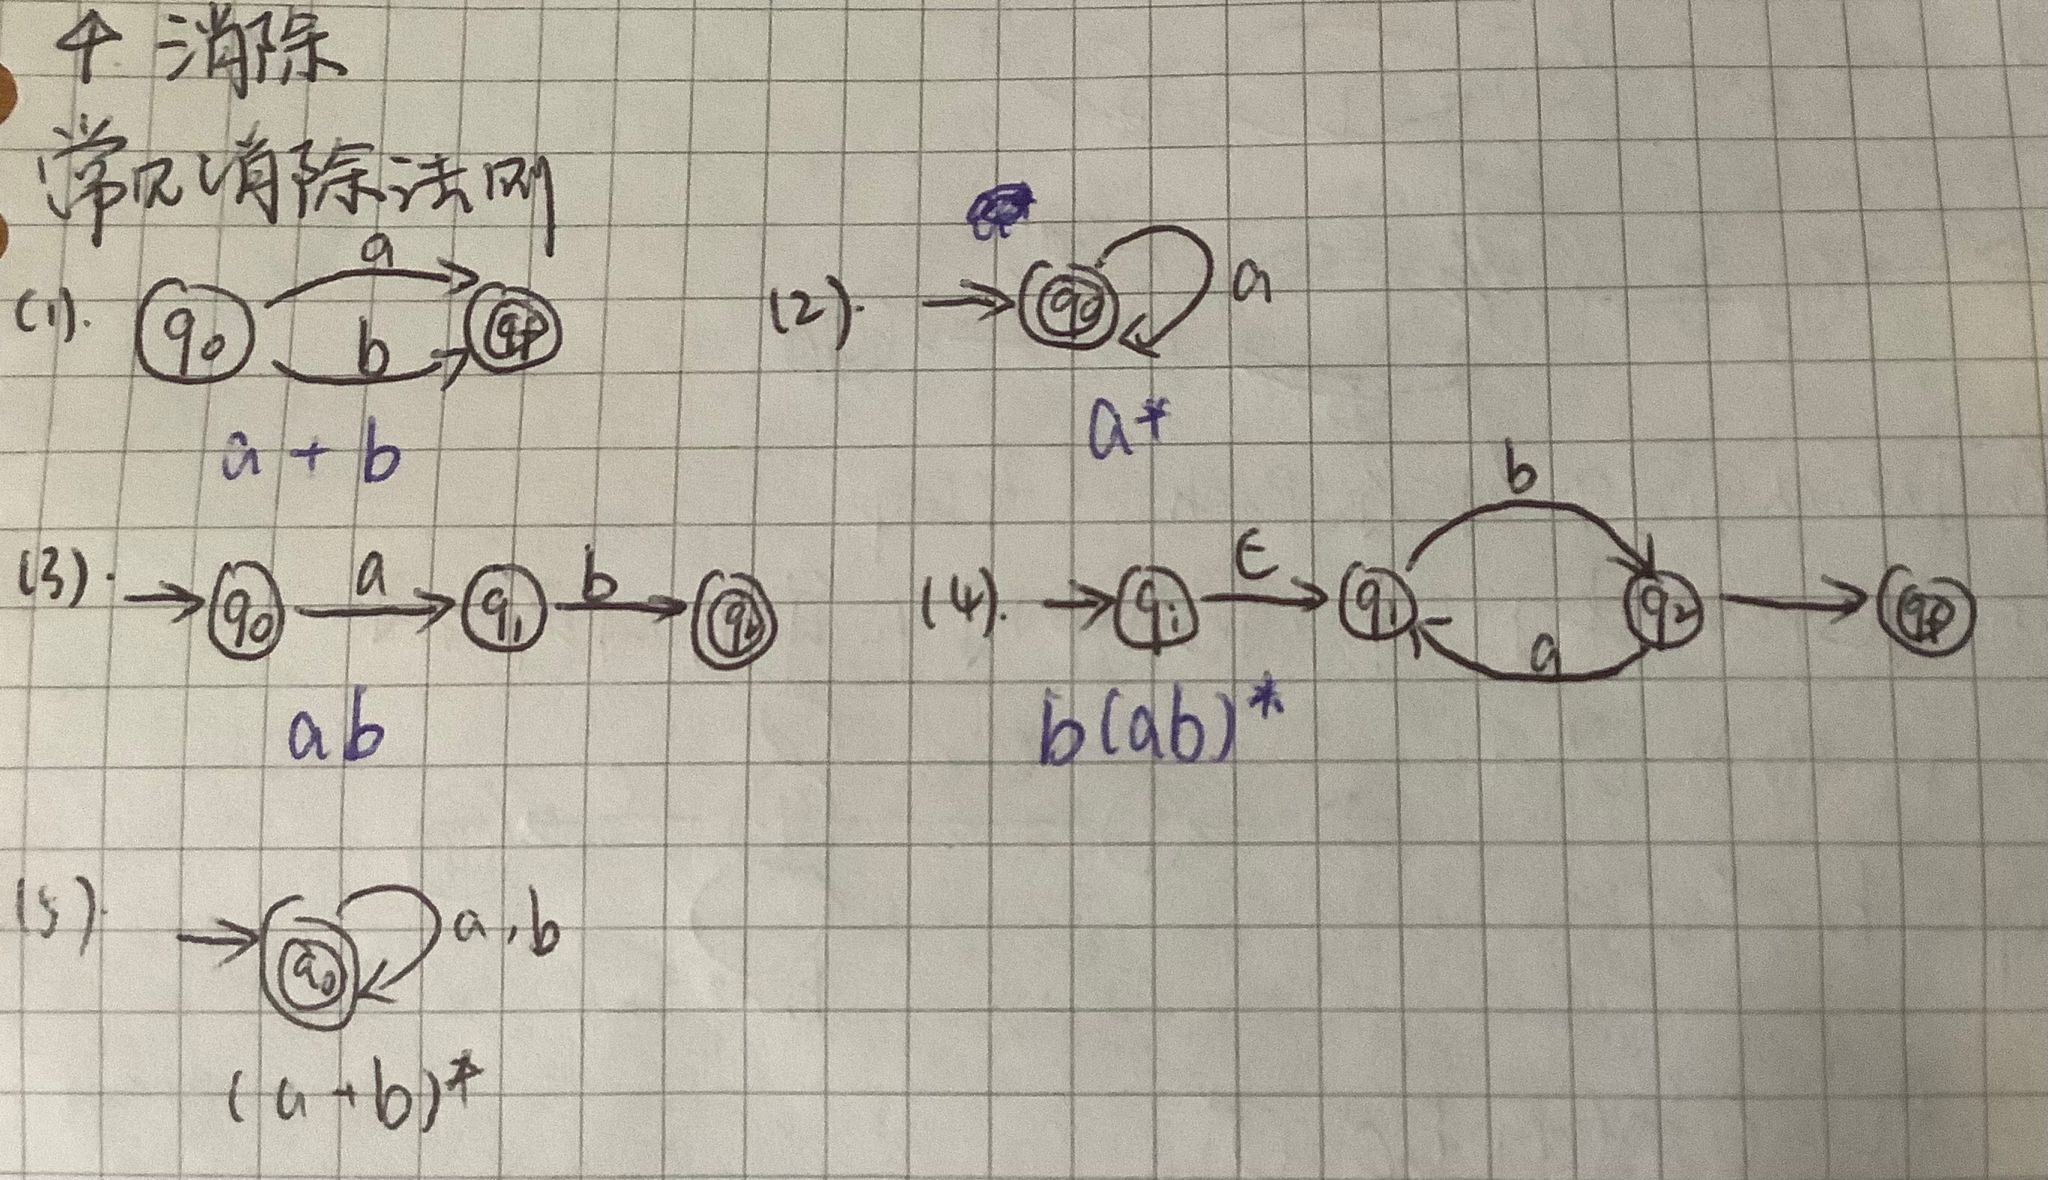 ↑ 消除
常见消除法则
(1). q₀ a b qf
a + b
(2). → q₀ a
a*
(3). → q₀ a q₁ b q₂
ab
(4). → qᵢ ε q₁ b a q₂ → qf
b(ab)*
(5). → q₀ a,b
(a+b)*